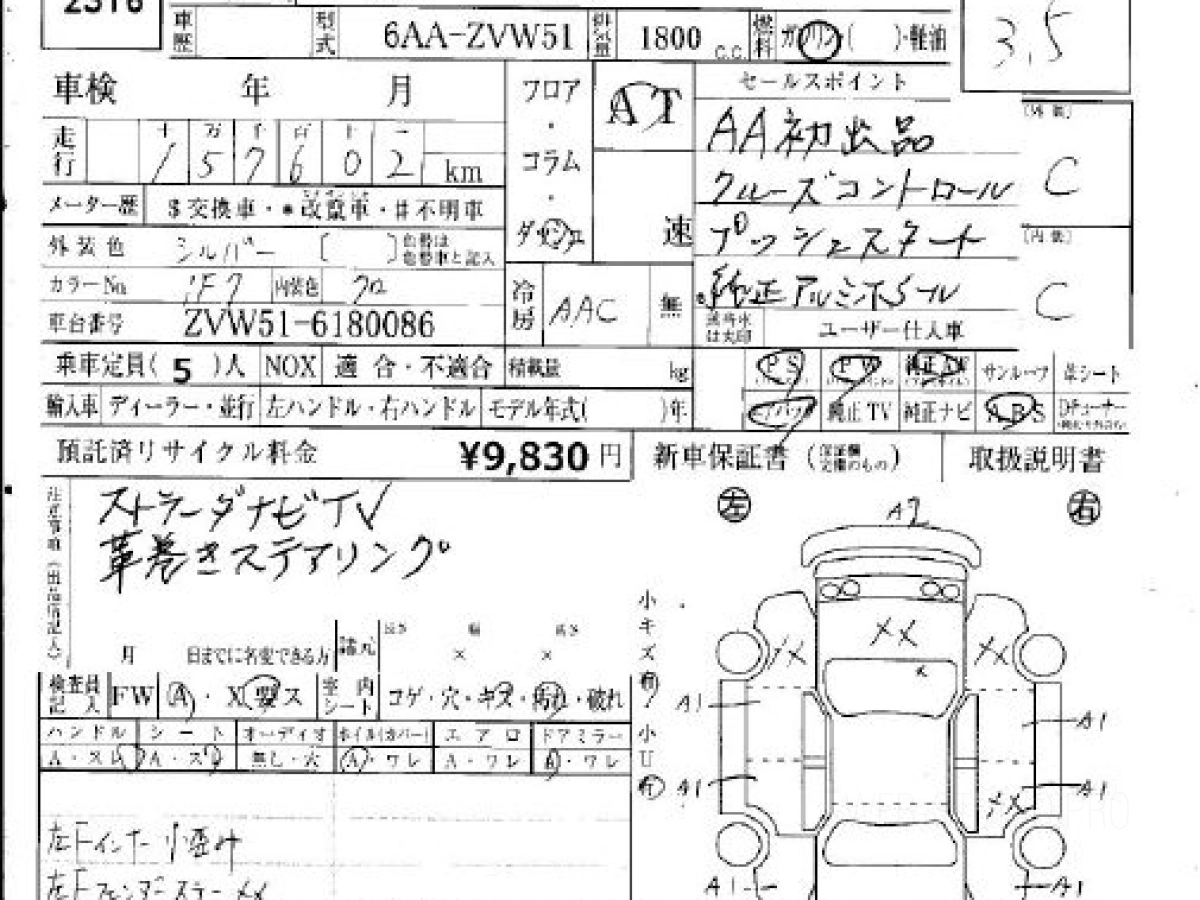 2316
車歴 型式 6AA-ZVW51 排気量 1800 c.c. 燃料 ガソリン( )・軽油
3.5
車検 年 月
フロア・コラム・ダッシュ
AT
速
セールスポイント
AA初出品
クルーズコントロール
プッシュスタート
純正アルミホイール
ユーザー仕入車
C
C
走行 十 万 千 百 十 一
1 5 7 6 0 2 km
メーター歴 $交換車・*改竄車・#不明車
外装色 シルバー [ ] 色替は色替車と記入
カラーNo. 1F7 内装色 クロ
冷房 AAC 無
車台番号 ZVW51-6180086
乗車定員( 5 )人 NOX 適合・不適合 積載量 kg
PS PW 純正AW サンルーフ 革シート
輸入車 ディーラー・並行 左ハンドル・右ハンドル モデル年式( )年
エアバッグ 純正TV 純正ナビ ABS
預託済リサイクル料金 ¥9,830 円 新車保証書 取扱説明書
ストラーダナビTV
革巻きステアリング
月 日までに名変できる方 諸元 長さ 幅 高さ
× ×
左 右
小キズ有 小U有
検査員記入 FW A・X要ス 室内シート コゲ・穴・キズ・汚れ・破れ
ハンドル シート オーディオ ホイル(カバー) エアロ ドアミラー
A・スレ A・スレ 無し・穴 A・ワレ A・ワレ A・ワレ
左Fインナー小歪み
左Fフェンダーステー XX
A2
XX
XX XX
A1 A1
A1 A1
XX
A1 A1